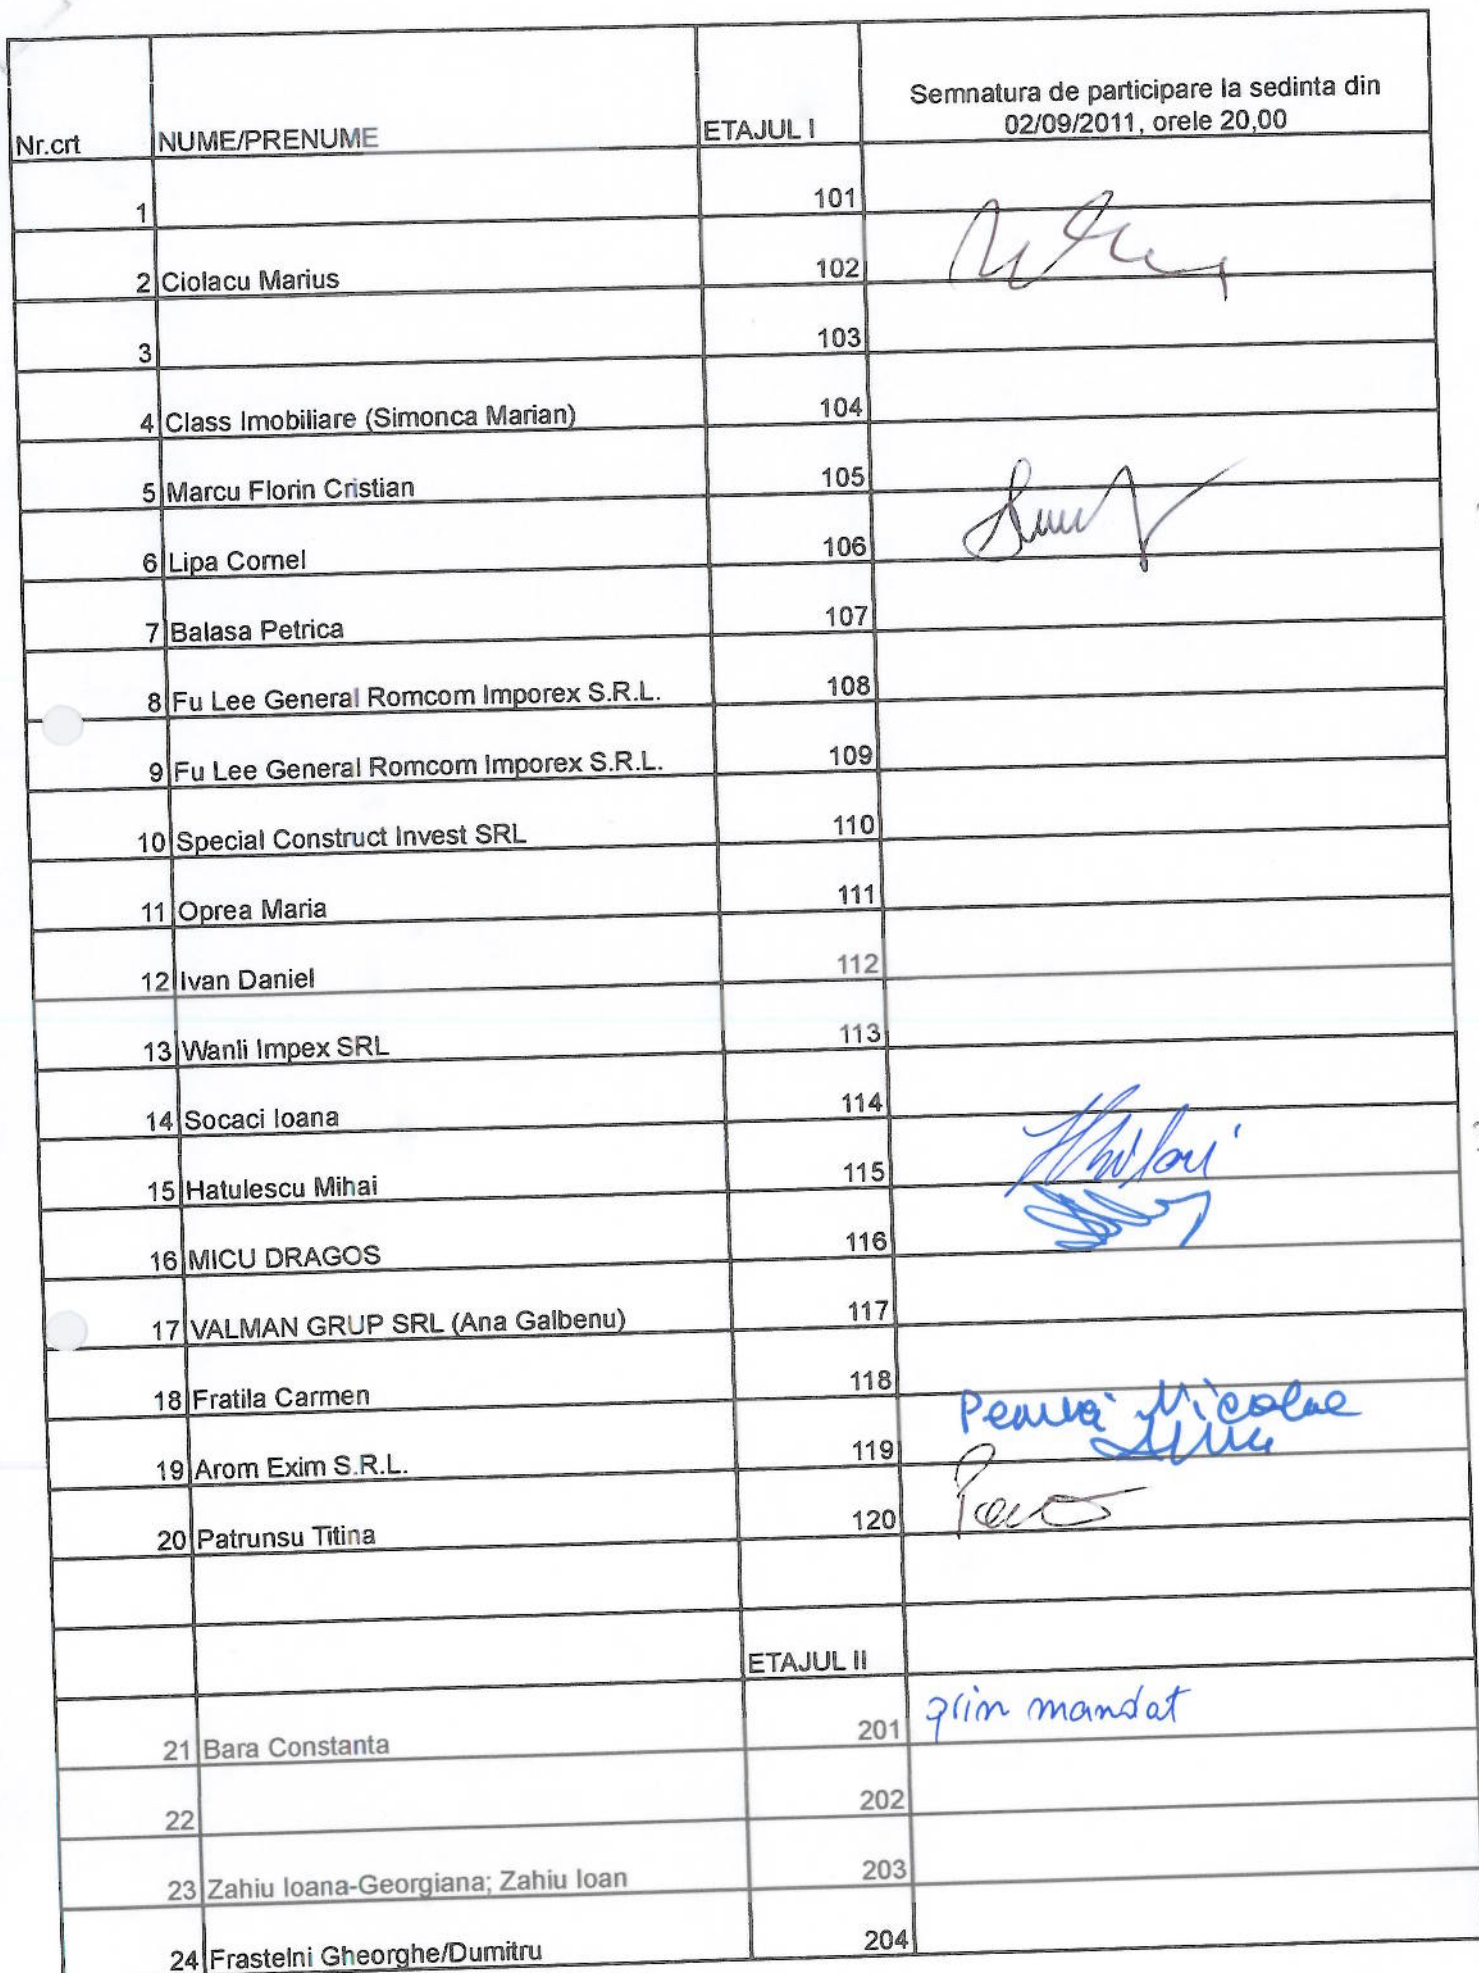 Nr.crt NUME/PRENUME ETAJUL I Semnatura de participare la sedinta din
02/09/2011, orele 20,00
1 101
2 Ciolacu Marius 102
3 103
4 Class Imobiliare (Simonca Marian) 104
5 Marcu Florin Cristian 105
6 Lipa Cornel 106
7 Balasa Petrica 107
8 Fu Lee General Romcom Imporex S.R.L. 108
9 Fu Lee General Romcom Imporex S.R.L. 109
10 Special Construct Invest SRL 110
11 Oprea Maria 111
12 Ivan Daniel 112
13 Wanli Impex SRL 113
14 Socaci Ioana 114
15 Hatulescu Mihai 115
16 MICU DRAGOS 116
17 VALMAN GRUP SRL (Ana Galbenu) 117
18 Fratila Carmen 118
19 Arom Exim S.R.L. 119 Nicolae
20 Patrunsu Titina 120
ETAJUL II
21 Bara Constanta 201 prin mandat
22 202
23 Zahiu Ioana-Georgiana; Zahiu Ioan 203
24 Frastelni Gheorghe/Dumitru 204